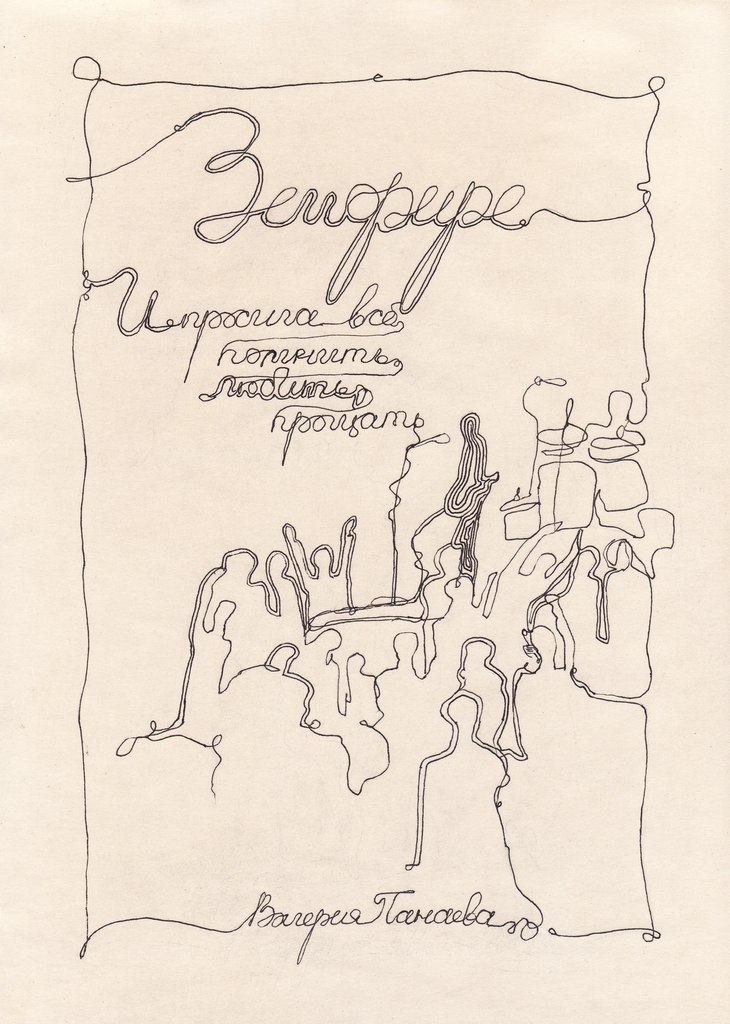 Земфире
И пржига всё,
помнить,
любить,
прощать
Валерия Панаева